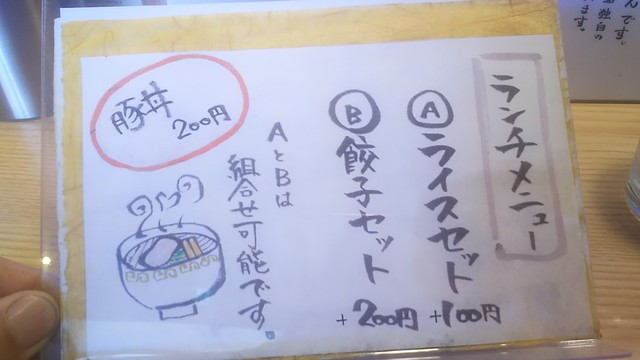 ランチメニュー
Ⓐライスセット +100円
Ⓑ餃子セット +200円
AとBは
組合せ可能です。
豚丼
200円
んです。
独自の
ます。